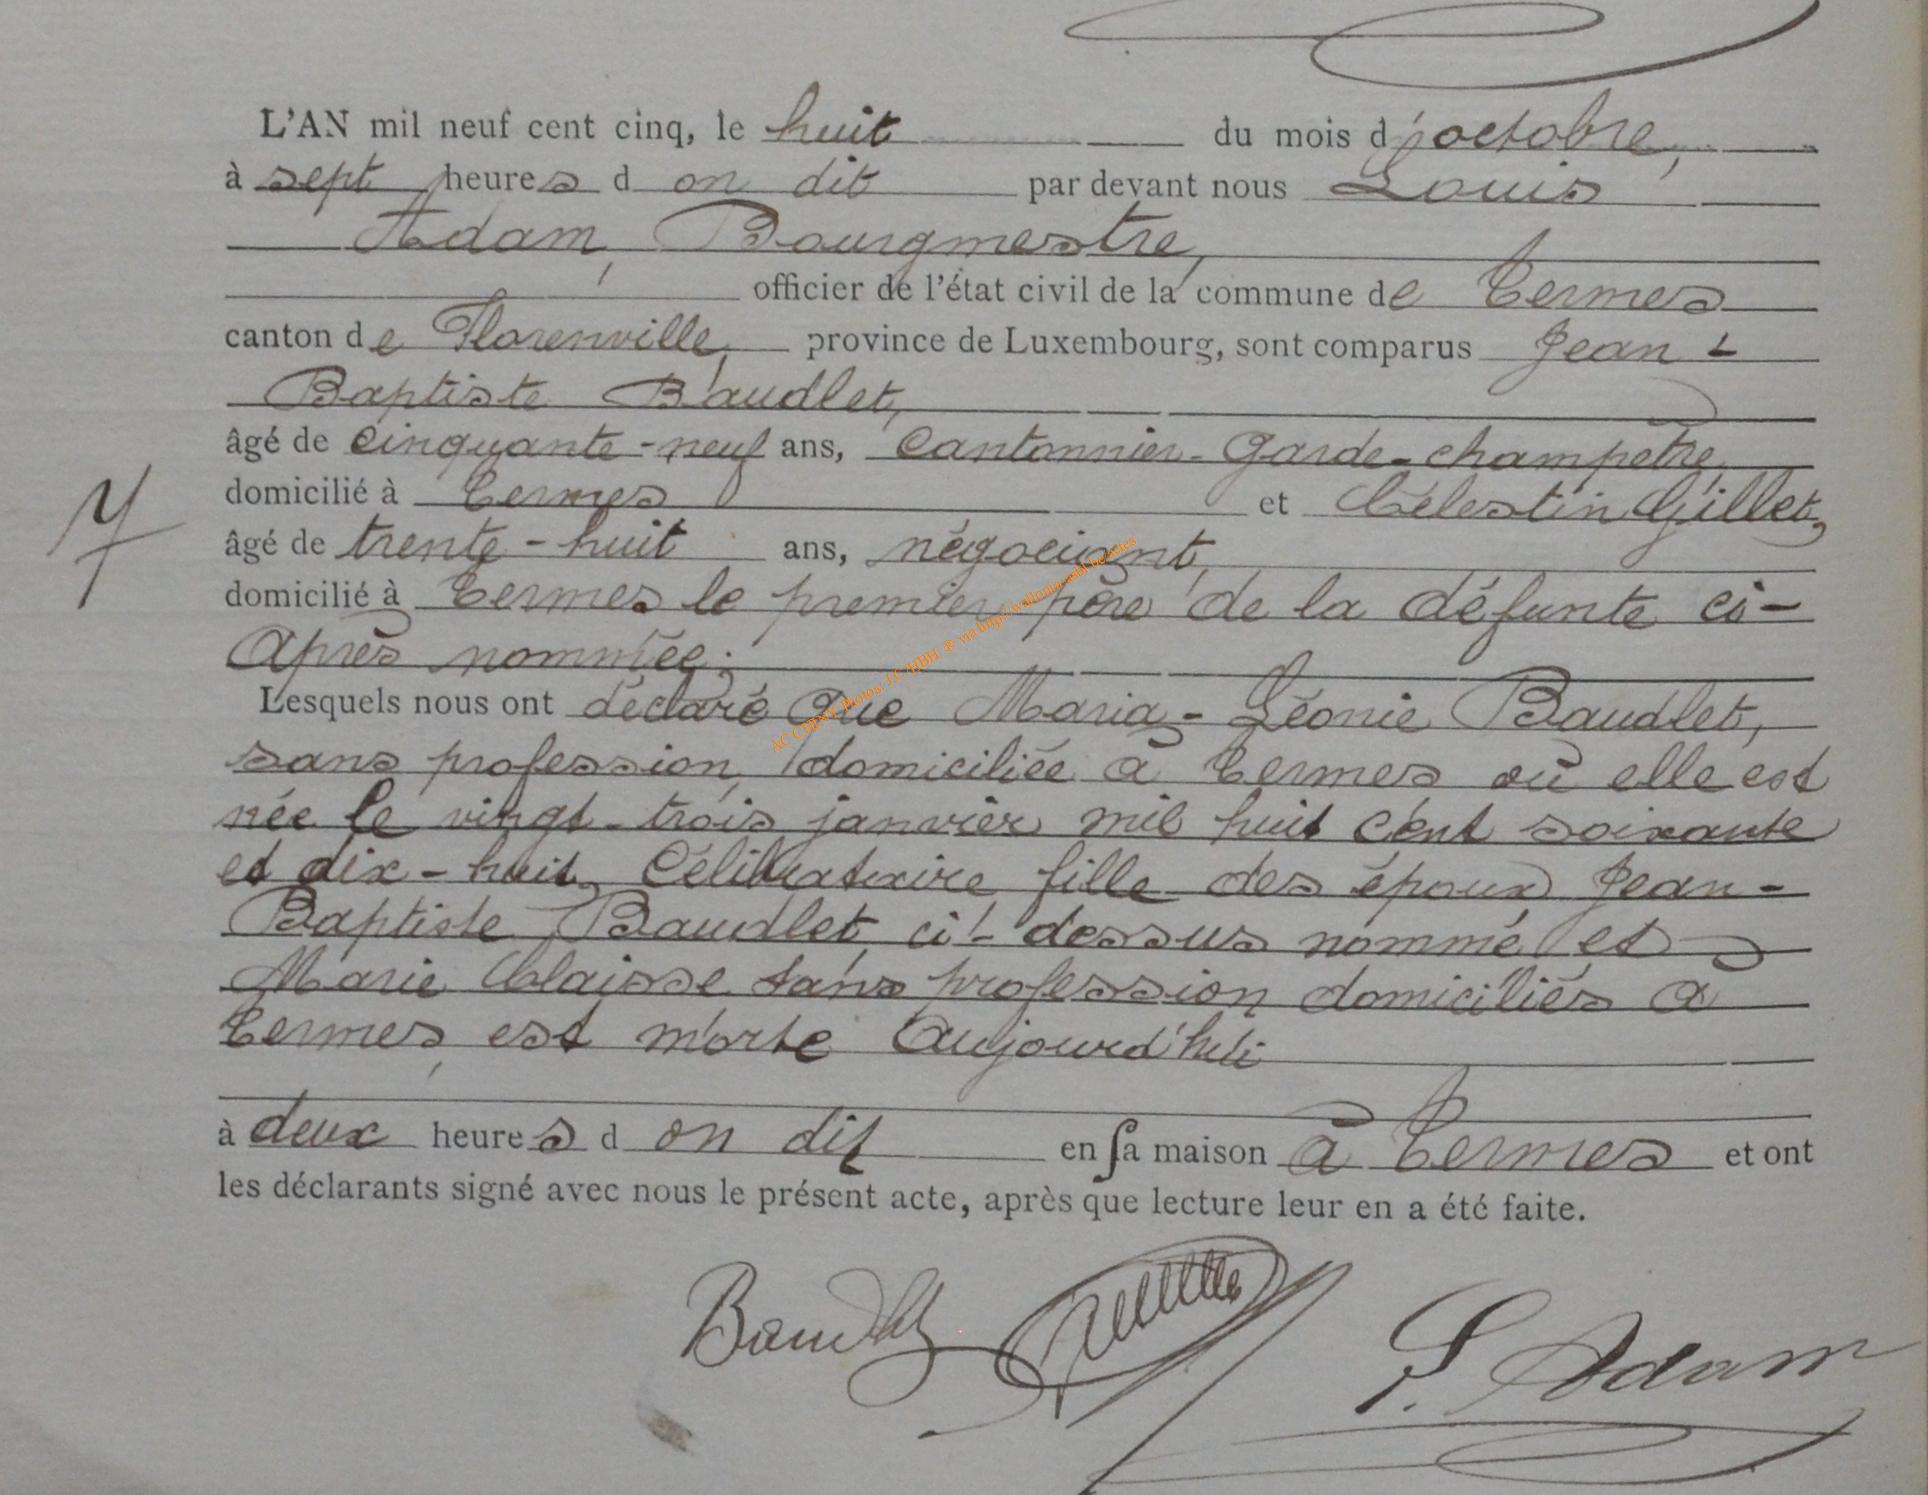 L'AN mil neuf cent cinq, le huit du mois d'octobre,
à sept heures d on dit par devant nous Louis
Adam, Bourgmestre,
officier de l'état civil de la commune de Termes
canton de Florenville, province de Luxembourg, sont comparus Jean-
Baptiste Baudlet,
âgé de cinquante-neuf ans, Cantonnier-Garde-champêtre,
domicilié à Termes et Célestin Gillet,
7
âgé de trente-huit ans, négociant,
domicilié à Termes le premier père de la défunte ci-
après nommée;
Lesquels nous ont déclaré que Maria-Léonie Baudlet,
sans profession, domiciliée à Termes où elle est
née le vingt-trois janvier mil huit cent soixante
et dix-huit, Célibataire fille des époux Jean-
Baptiste Baudlet, ci-dessus nommé, et
Marie Claisse sans profession domiciliés à
Termes, est morte aujourd'hui
à deux heures d on dit en sa maison à Termes et ont
les déclarants signé avec nous le présent acte, après que lecture leur en a été faite.
Baudlet L. Adam